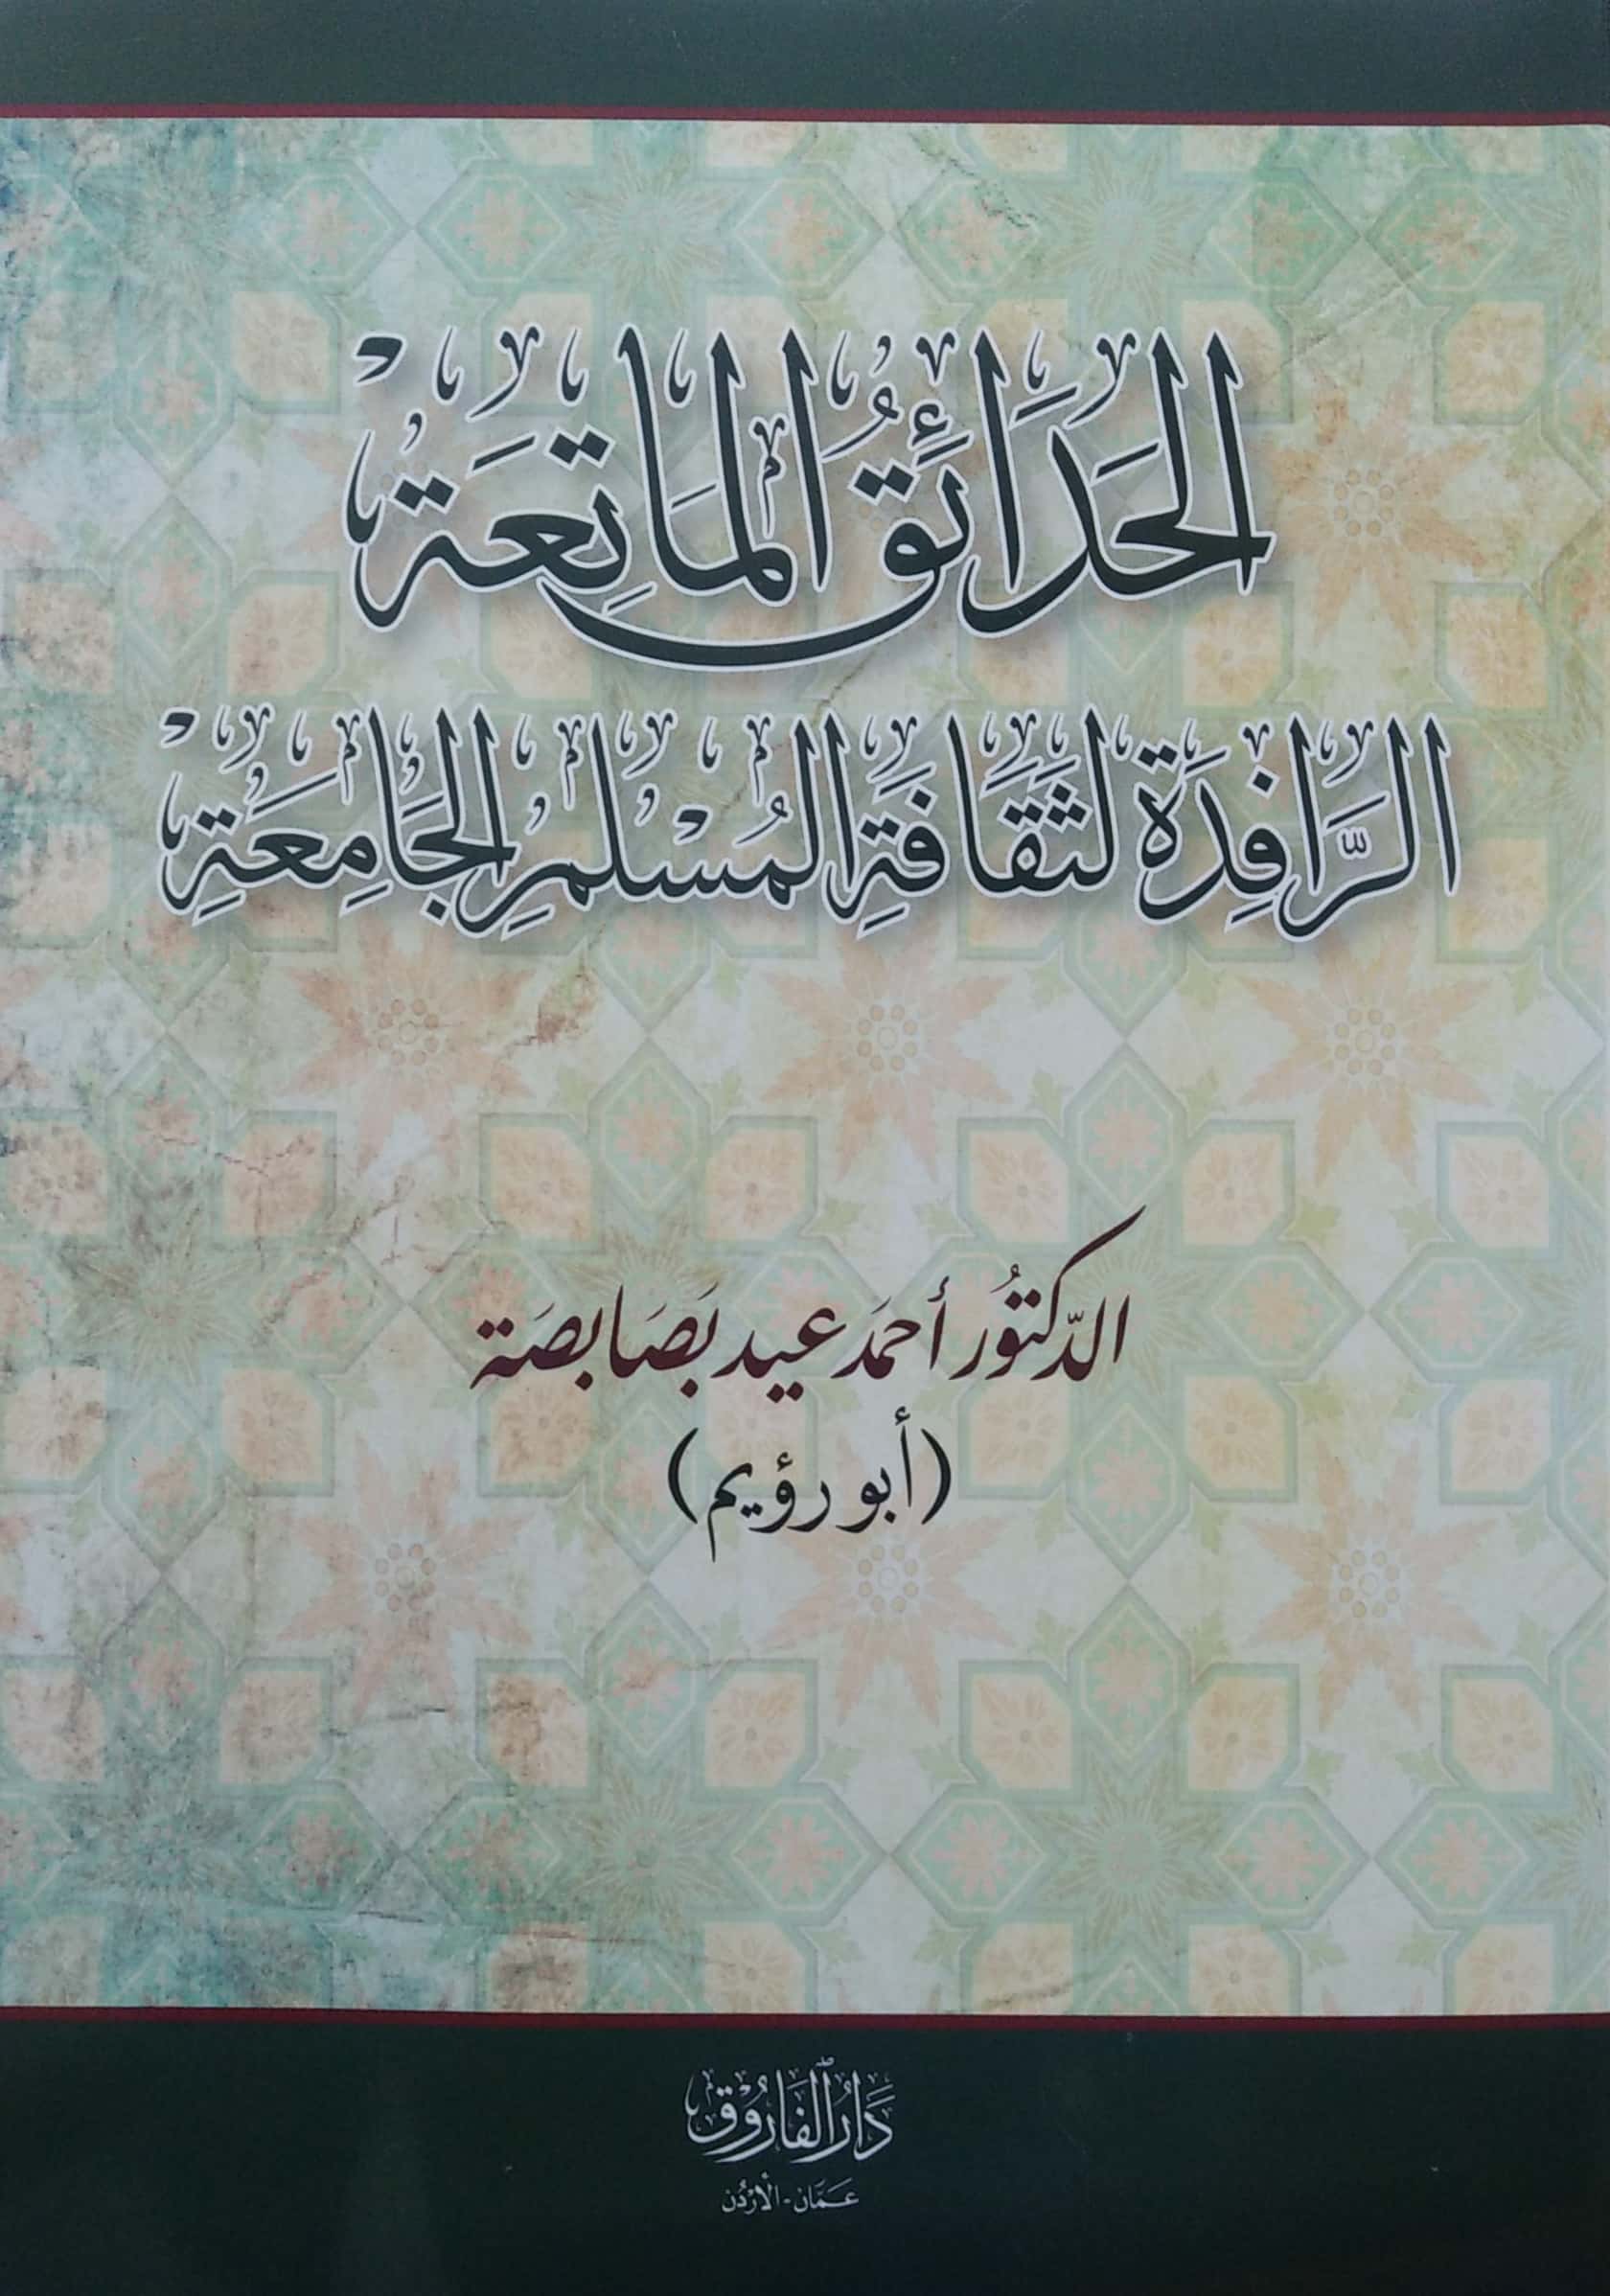 الحَدَائِقُ المَاتِعَة
الرَّافِدَة لثَقَافَةِ المُسْلِمِ الجَامِعَةِ
الدّكتُور أحمَد عيد بَصَابصَة
(أبو رؤيم)
دَارُ الفَارُوق
عَمَّان - الأُرْدُن